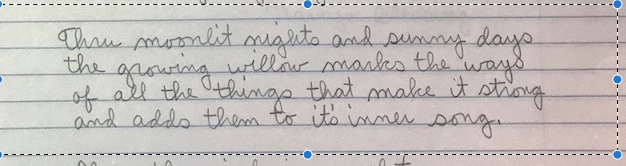 Thru moonlit nights and sunny days
the growing willow marks the ways
of all the things that make it strong
and adds them to it's inner song.